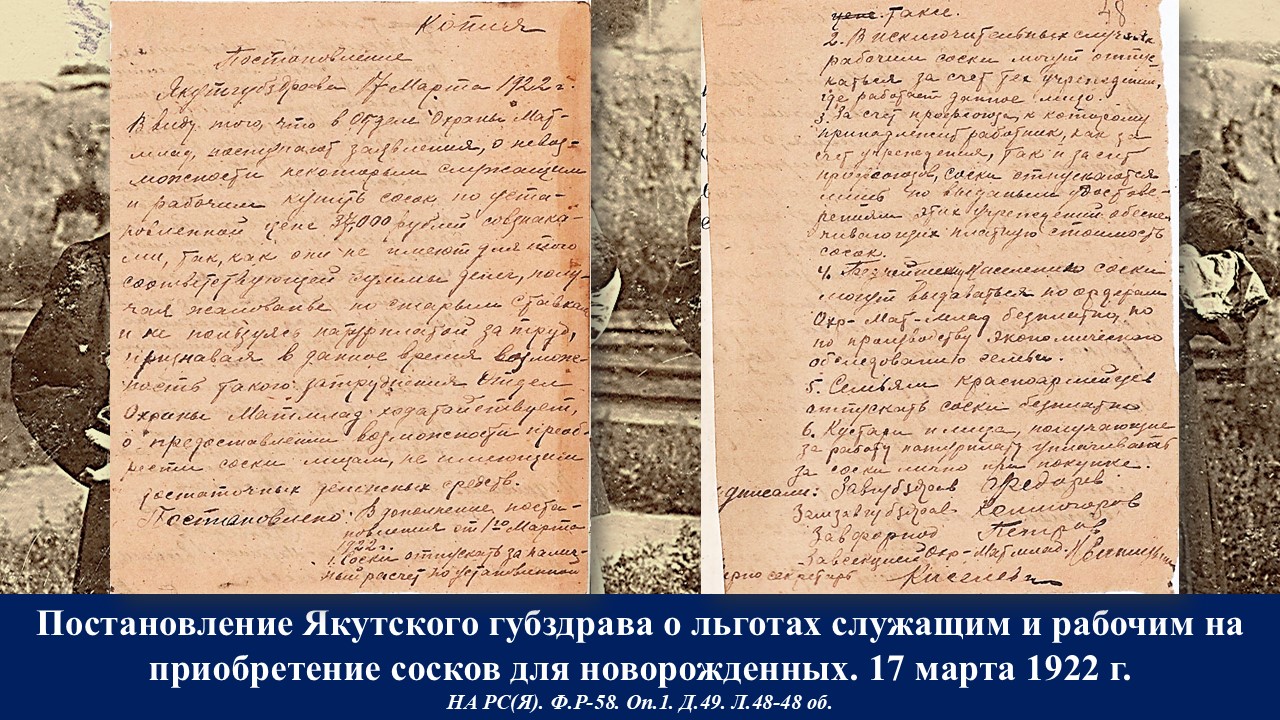 Копия
Постановление
Якутгубздрава 17 Марта 1922 г.
В виду того, что в Отдел Охраны Мат-
млад, поступают заявления, о невоз-
можности некоторым служащим
и рабочим купить сосок по уста-
новленной цене рублей совзнака-
ми, так, как они не имеют для этого
соответствующей суммы денег, полу-
чая жалованье по старым ставкам
и не пользуясь натурплатой за труд,
признавая в данное время возмож-
ность такого затруднения Отдел
Охраны Матмлад ходатайствует,
о предоставлении возможности приоб-
рести соски лицам, не имеющим
достаточных денежных средств.
Постановлено: В дополнение поста-
новления от Марта
1922 г.
1. Соски отпускать за налич-
ный расчет по установленной
48
цене таксе.
2. В исключительных случаях
рабочим соски могут отпус-
каться за счет тех учреждений,
где работает данное лицо.
3. За счет профсоюза, к которому
принадлежит работник, как за
счет учреждения, так и за счет
профсоюза, соски отпускаются
лишь по выданным удостове-
рениям этих учреждений обеспе-
чивающих платную стоимость
сосок.
4. Беднейшему Населению соски
могут выдаваться по ордерам
Охр-Мат-млад бесплатно, но
по производству экономического
обследованию семьи.
5. Семьям красноармейцев
отпускать соски бесплатно
6. Кустари и лица, получающие
за работу натурплату уплачивают
за соски лично при покупке.
дписали: Завгубздрав
Замзавгубздрав
Завфармод Петров
Завсекцией Охр-Мат-млад
ерно секретарь Киселев
Постановление Якутского губздрава о льготах служащим и рабочим на
приобретение сосков для новорожденных. 17 марта 1922 г.
НА РС(Я). Ф.Р-58. Оп.1. Д.49. Л.48-48 об.